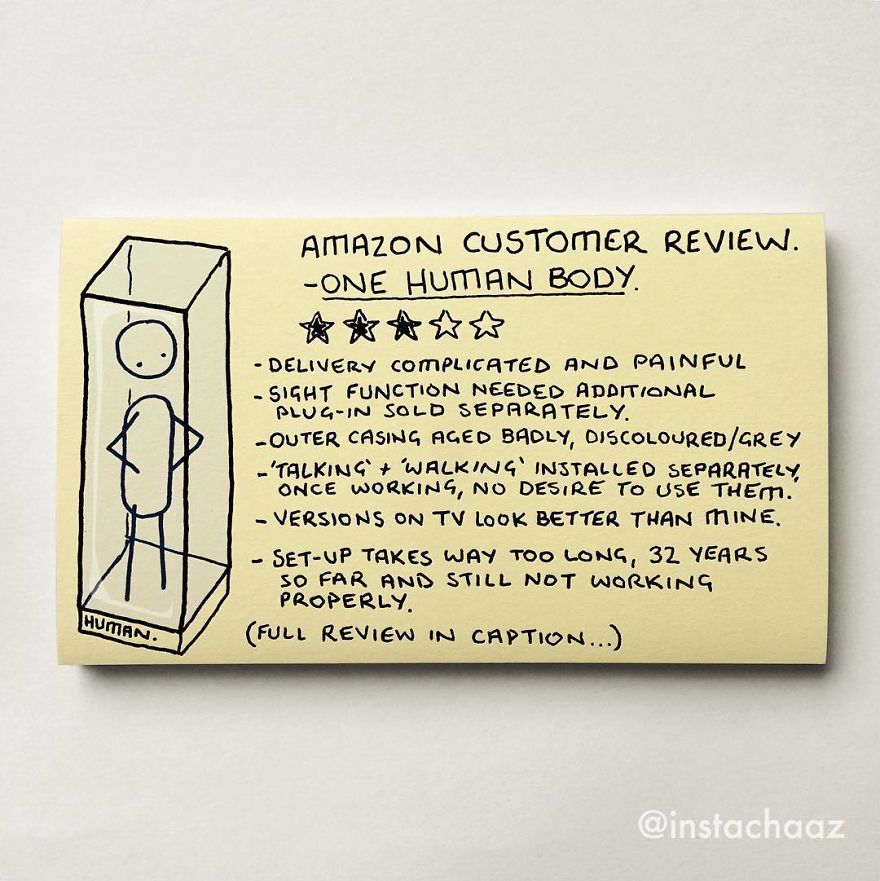 AMAZON CUSTOMER REVIEW.
-ONE HUMAN BODY.
- DELIVERY COMPLICATED AND PAINFUL
- SIGHT FUNCTION NEEDED ADDITIONAL
PLUG-IN SOLD SEPARATELY.
- OUTER CASING AGED BADLY, DISCOLOURED/GREY
- 'TALKING' + 'WALKING' INSTALLED SEPARATELY,
ONCE WORKING, NO DESIRE TO USE THEM.
- VERSIONS ON TV LOOK BETTER THAN MINE.
- SET-UP TAKES WAY TOO LONG, 32 YEARS
SO FAR AND STILL NOT WORKING
PROPERLY.
(FULL REVIEW IN CAPTION...)
HUMAN.
@instachaaz